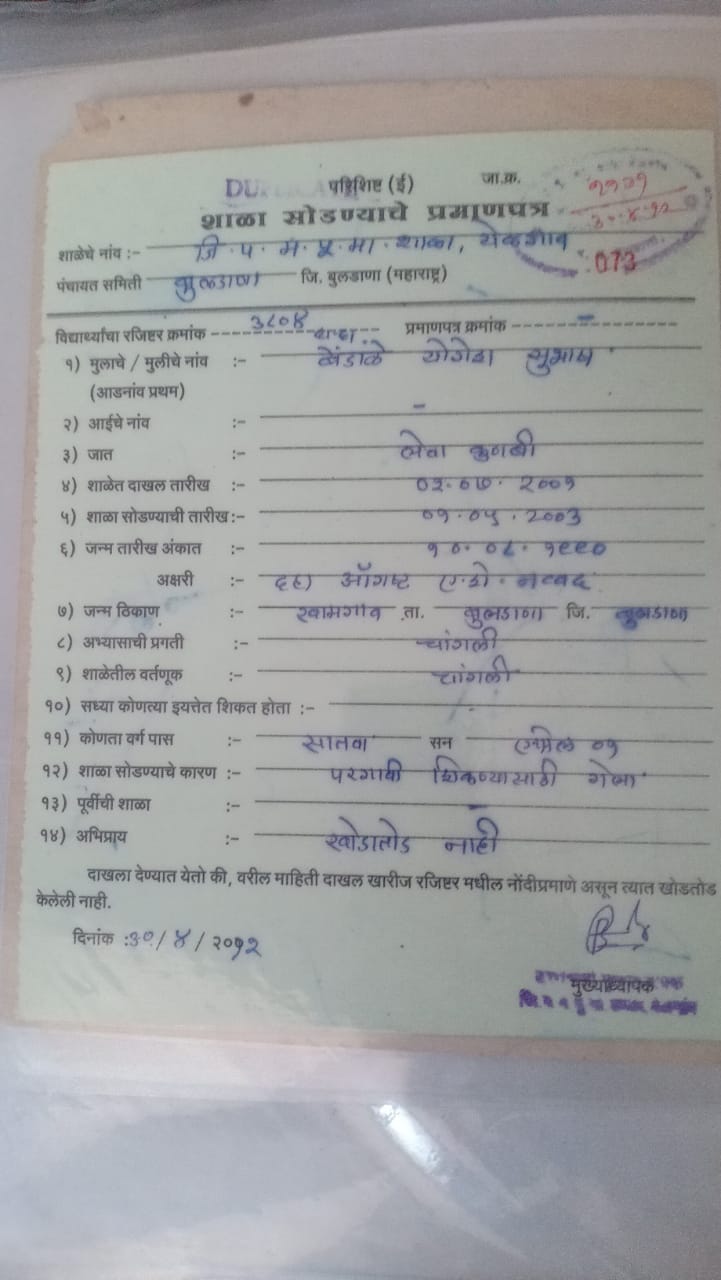 परिशिष्ट (ई) जा.क्र.
शाळा सोडण्याचे प्रमाणपत्र
शाळेचे नांव :- जि.प.म.प्रा.मा.शाळा,
073
पंचायत समिती बुलडाणा जि. बुलडाणा (महाराष्ट्र)
विद्यार्थ्यांचा रजिष्टर क्रमांक ३८०४ प्रमाणपत्र क्रमांक -
१) मुलाचे / मुलीचे नांव :- योगेश सुभाष
(आडनांव प्रथम)
२) आईचे नांव :- -
३) जात :- लेवा कुणबी
४) शाळेत दाखल तारीख :- ०२.०७.२००१
५) शाळा सोडण्याची तारीख:- ०१.०५.२००३
६) जन्म तारीख अंकात :- १०.०८.१९९०
अक्षरी :- दहा ऑगष्ट ए.शे.नव्वद
७) जन्म ठिकाण :- खामगांव ता. बुलडाणा जि. बुलडाणा
८) अभ्यासाची प्रगती :- चांगली
९) शाळेतील वर्तणूक :- चांगली
१०) सध्या कोणत्या इयत्तेत शिकत होता :- -
११) कोणता वर्ग पास :- सातवा सन एप्रिल
१२) शाळा सोडण्याचे कारण :- परगावी शिकण्यासाठी गेला
१३) पूर्वीची शाळा :- -
१४) अभिप्राय :- खोडातोड नाही
दाखला देण्यात येतो की, वरील माहिती दाखल खारीज रजिष्टर मधील नोंदीप्रमाणे असून त्यात खोडतोड
केलेली नाही.
दिनांक :३०/४/२०१२
मुख्याध्यापक